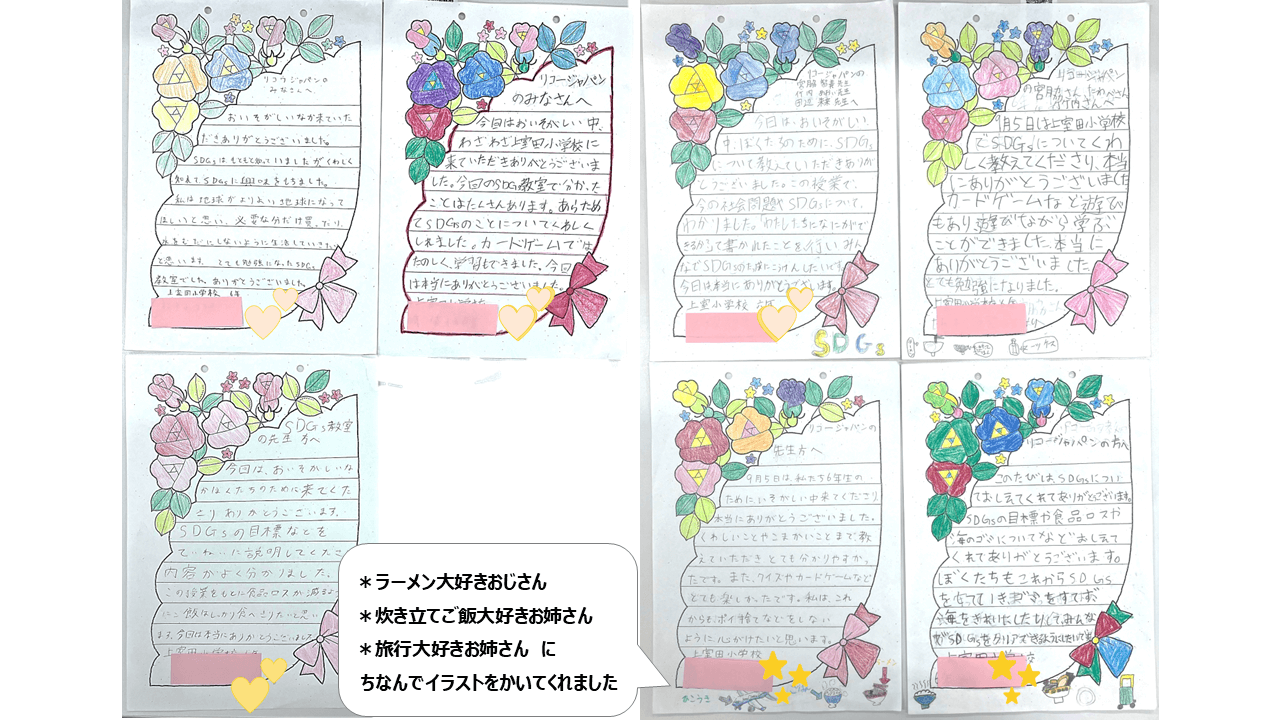 リコージャパンの
みなさんへ
おいそがしいなか来ていた
だきありがとうございました。
SDGsはもともと知っていましたがくわしく
知れてSDGsに興味をもちました。
私は地球がよりよい地球になって
ほしいと思い、必要な分だけ買ったり、
水をむだにしないように生活していきたい
と思います。とても勉強になったSDGs
教室でした。ありがとうございました。
上室田小学校 6年
リコージャパン
のみなさんへ
今日はおいそがしい中、
わざわざ上室田小学校に
来ていただきありがとうございま
した。今回のSDGs教室で分かった
ことはたくさんあります。あらため
てSDGsのことについてくわしく
しれました。カードゲームでは
たのしく、学習もできました。今回
は本当にありがとうございました。
上室田小学校
リコージャパンの
今日は、おいそがしい
中、ぼくたちのために、SDGs
について教えていただきありが
とうございました。この授業で、
今の社会問題やSDGsについて、
わかりました。「わたしたちになにがで
きるか」って書かれたことを行い みん
なでSDGsの
今日は本当にありがとうございました。
上室田小学校 六年
SDGs
リコージャパン
の宮脇さん たなべさん
竹内さんへ
9月5日は上室田小学校
でSDGsについてくわ
しく教えてくださり、本当
にありがとうございました
カードゲームなど遊び
もあり遊びながら学ぶ
ことができました。本当に
ありがとうございました。
とても勉強になりました。
上室田小学校
SDGs教室
の先生方へ
今日は、おいそがしいな
かぼくたちのために来てくだ
さりありがとうございます。
SDGsの目標などを
ていねいに説明してくださ
内容がよく分かりました。
ます。今日は本当にありがとうございました
上室田小学校
リコージャパンの
先生方へ
9月5日は、私たち6年生の
ために、いそがしい中来てくださり
本当にありがとうございました。
くわしいことやこまかいことまで教
えていただき とても分かりやすか
たです。また、クイズやカードゲームなど
とても楽しかったです。私は、これ
からもポイ捨てなどをしない
ように心がけたいと思います。
上室田小学校
リコージャパンの方へ
このたびは、SDGsについ
ておしえてくれてありがとうございます。
SDGsの目標や食品ロスや
海のゴミについてなどおしえて
くれてありがとうございます。
ぼくたちもこれからSDGs
上室田小学校
＊ラーメン大好きおじさん
＊炊き立てご飯大好きお姉さん
＊旅行大好きお姉さん に
ちなんでイラストをかいてくれました